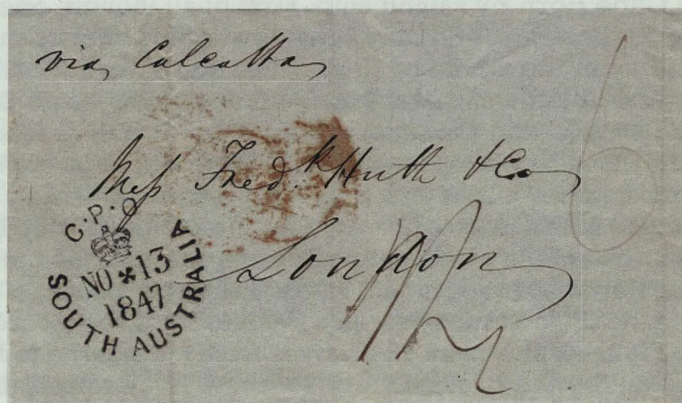 via Calcutta
Mess Fred.k Huth & Co
London
6
G.P.O
NO * 13
1847
SOUTH AUSTRALIA